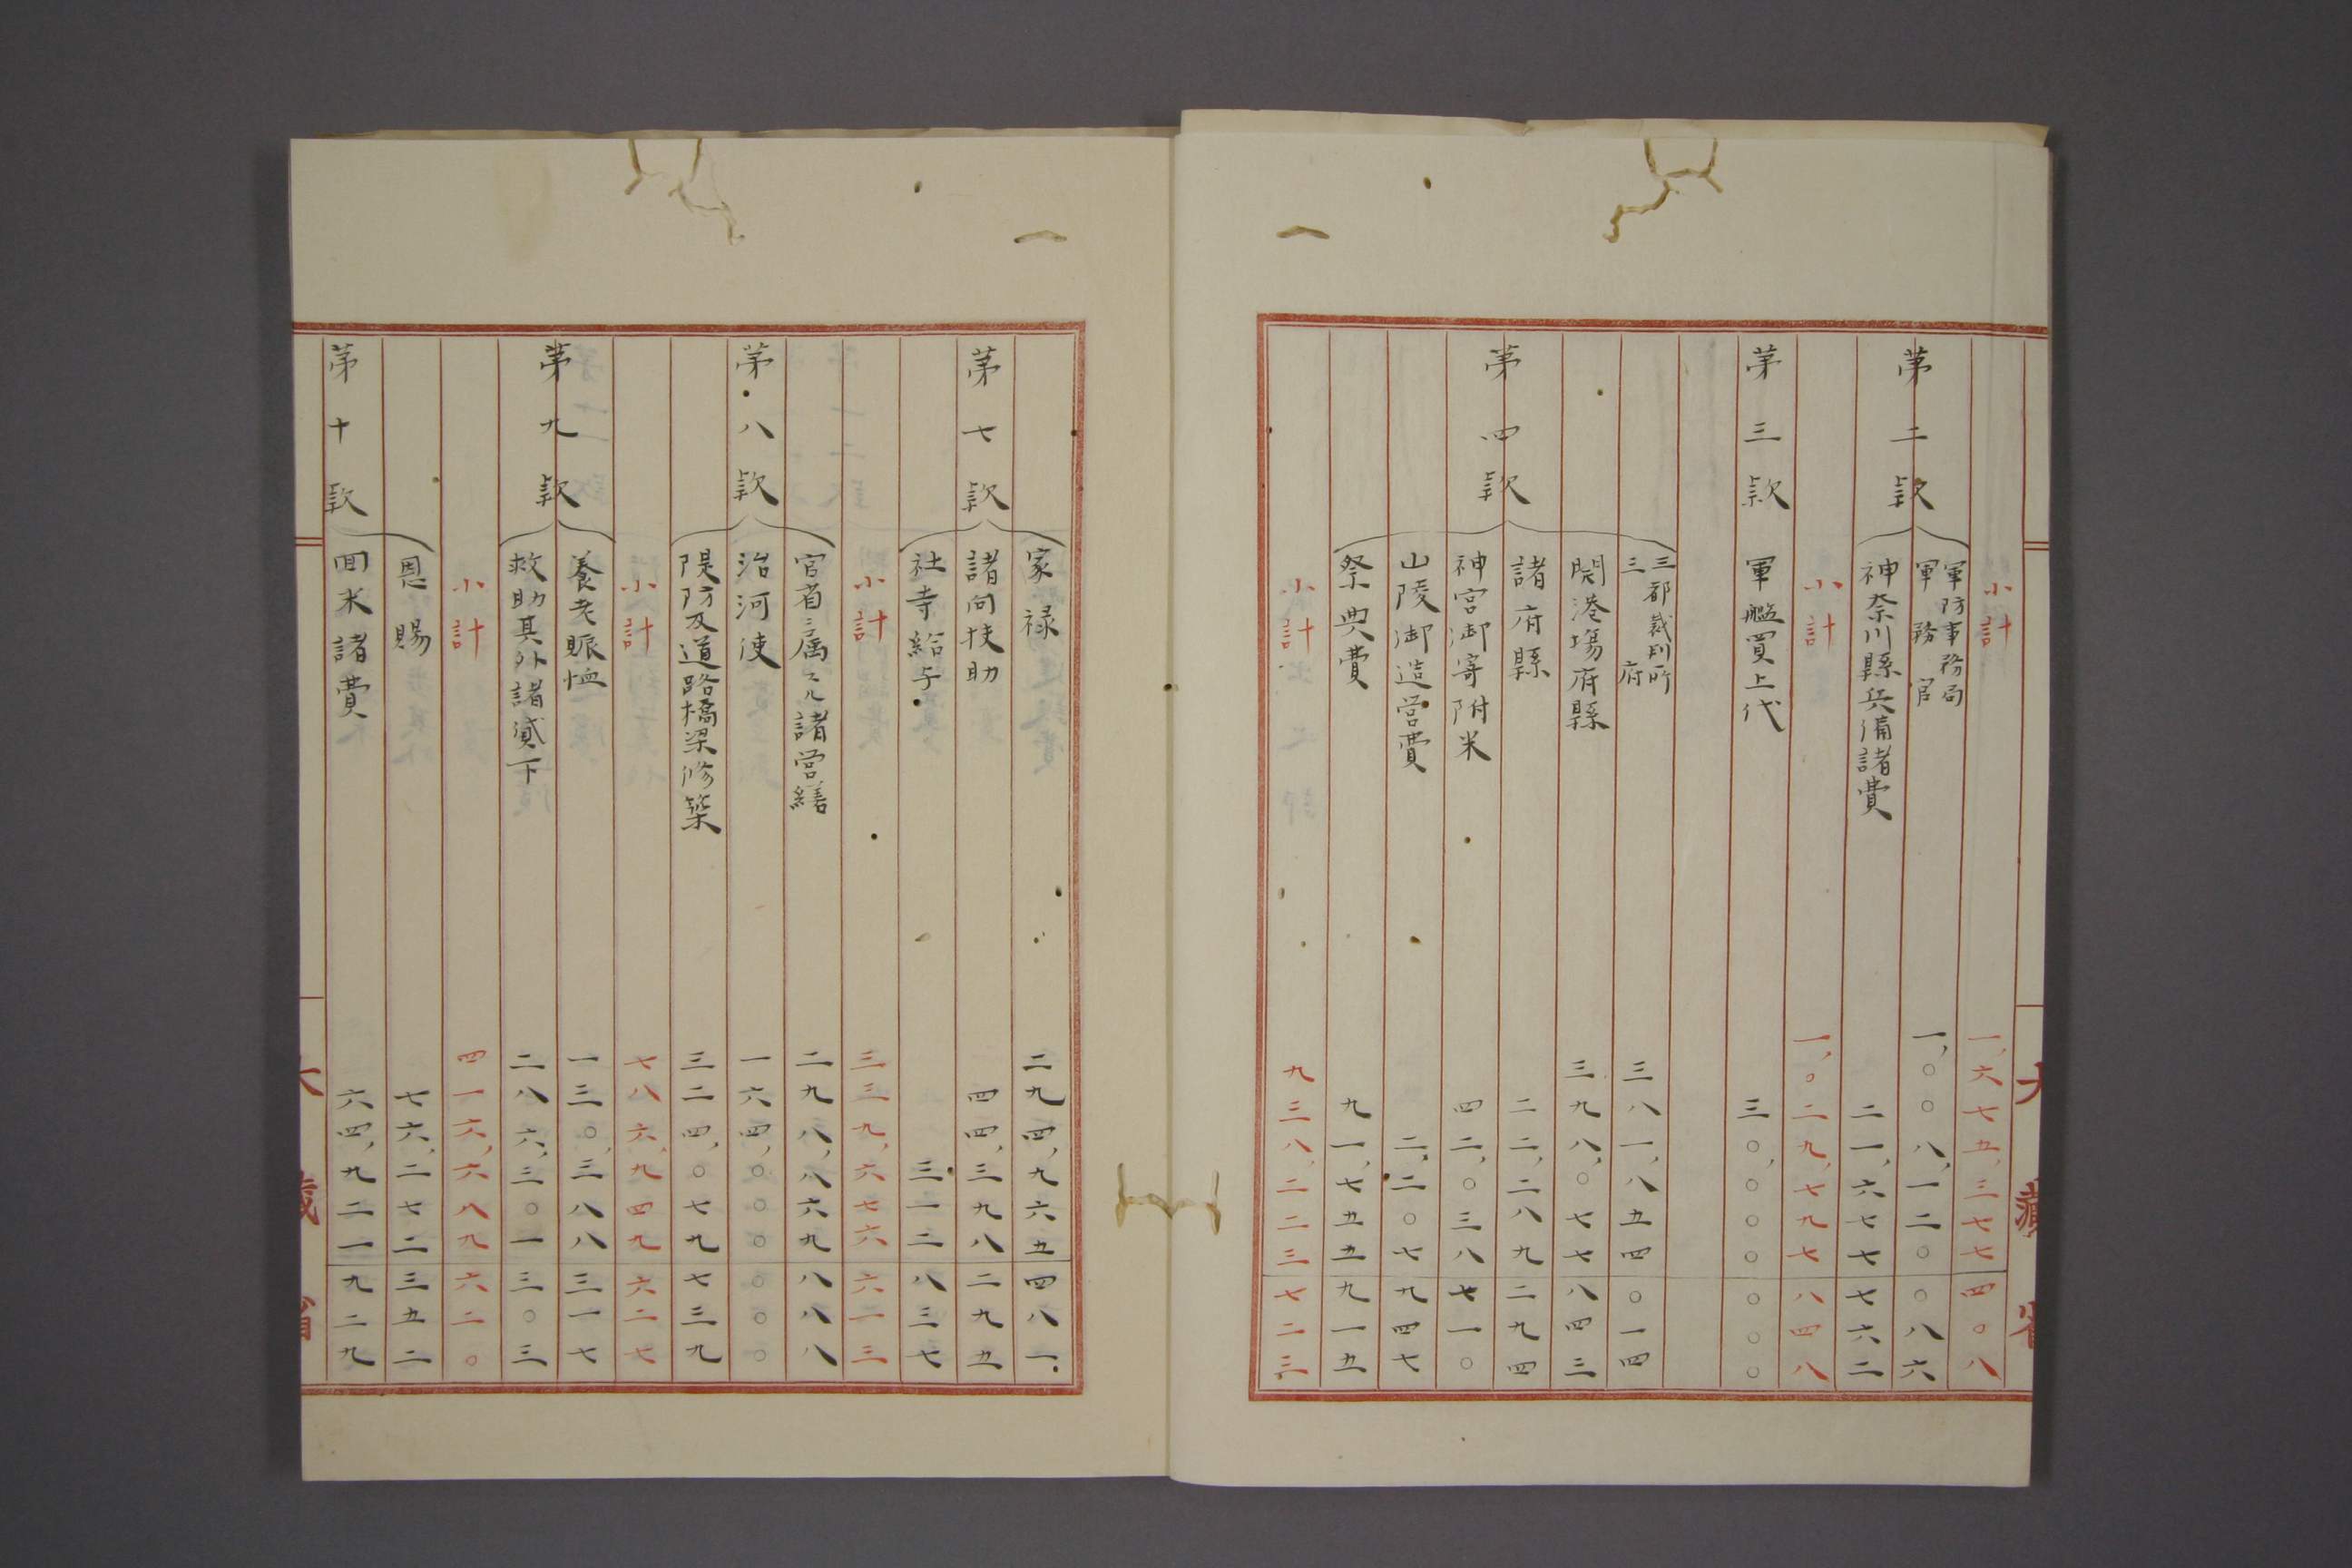 大藏省
小計 一,六七五,三七七四〇八
第二款
軍防事務局
軍務官 一,〇〇八,一二〇〇八六
神奈川縣兵備諸費 二一,六七七七六二
小計 一,〇二九,七九七八四八
第三款 軍艦買上代 三〇,〇〇〇〇〇〇
第四款
三都裁判所
三府 三八一,八五四〇一四
開港場府縣 三九八,〇七七八四三
諸府縣 二二,二八九二九四
神宮御寄附米 四二,〇三八七一〇
山陵御造営費 二,二〇七九四七
祭典費 九一,七五五九一五
小計 九三八,二二三七二三
第七款
家禄 二九四,九六五四八一
諸向扶助 四四,三九八二九五
社寺給与 三一二八三七
小計 三三九,六七六六一三
第八款
官省ニ属スル諸営繕 二九八,八六九八八八
治河使 一六四,〇〇〇〇〇〇
堤防及道路橋梁修築 三二四,〇七九七三九
小計 七八六,九四九六二七
第九款
養老賑恤 一三〇,三八八三一七
救助其外諸貸下 二八六,三〇一三〇三
小計 四一六,六八九六二〇
第十款
恩賜 七六,二七二三五二
回米諸費 六四,九二一九二九
大藏省